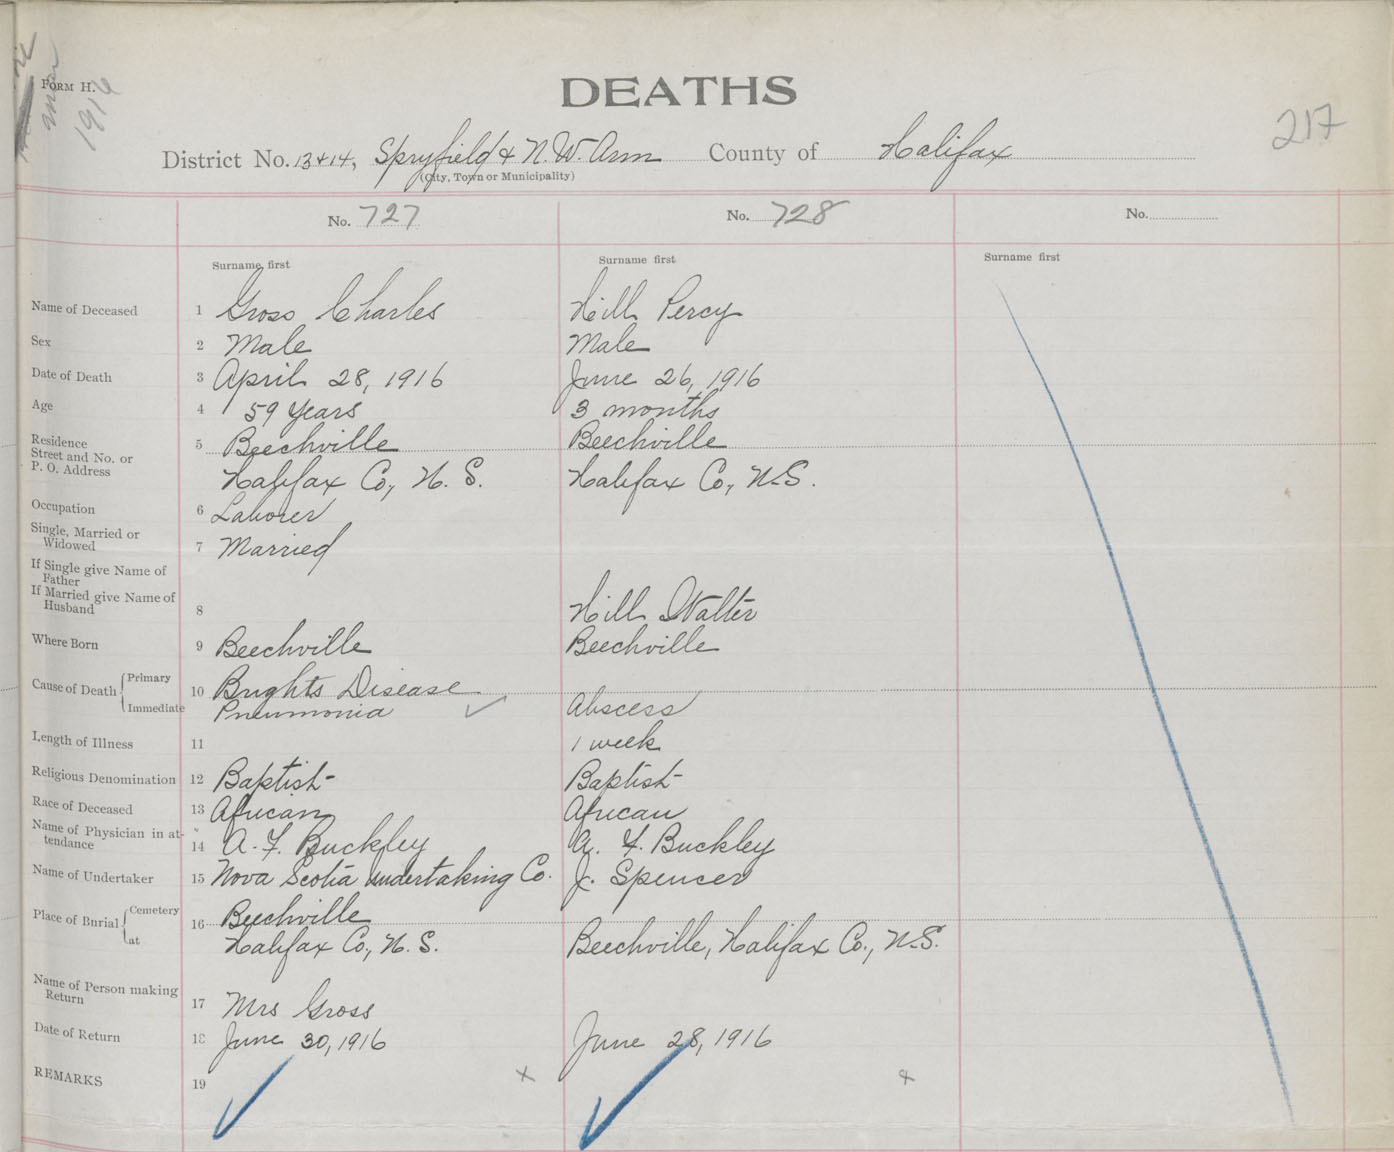 FORM H.
1916
DEATHS
217
District No. 13 & 14, Spryfield & N. W. Arm County of Halifax
(City, Town or Municipality)
No. 727 No. 728 No.
Surname first Surname first Surname first
Name of Deceased 1 Gross Charles Hill Percy
Sex 2 Male Male
Date of Death 3 April 28, 1916 June 26, 1916
Age 4 59 Years 3 months
Residence 5 Beechville Beechville
Street and No. or
P. O. Address Halifax Co., N. S. Halifax Co., N.S.
Occupation 6 Laborer
Single, Married or
Widowed 7 Married
If Single give Name of
Father
If Married give Name of
Husband 8 Hill Walter
Where Born 9 Beechville Beechville
Cause of Death Primary 10 Brights Disease
Immediate Pneumonia Abscess
Length of Illness 11 1 week
Religious Denomination 12 Baptist Baptist
Race of Deceased 13 African African
Name of Physician in at-
tendance 14 A. F. Buckley A. F. Buckley
Name of Undertaker 15 Nova Scotia Undertaking Co. J. Spencer
Place of Burial Cemetery 16 Beechville
at Halifax Co., N. S. Beechville, Halifax Co., N.S.
Name of Person making
Return 17 Mrs Gross
Date of Return 18 June 30, 1916 June 28, 1916
REMARKS 19